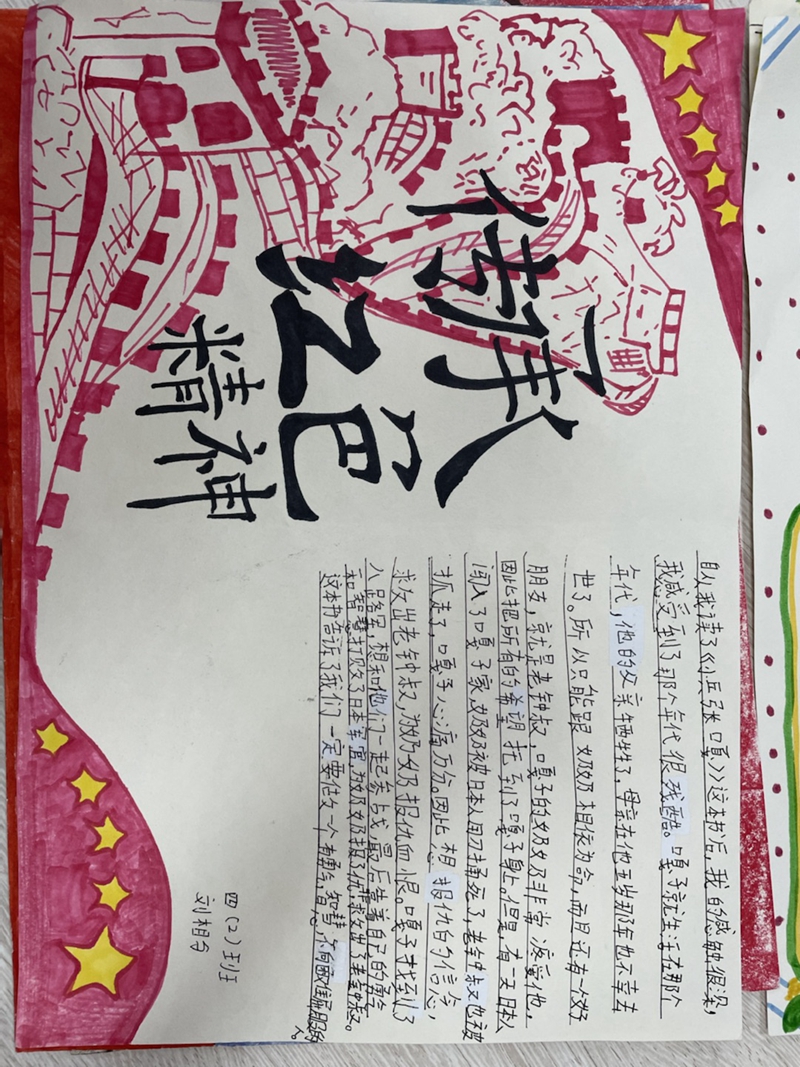 传承
红色
精神
自从我读了《小兵张嘎》这本书后,我的感触很深,
我感受到了那个年代很残酷。嘎子就生活在那个
年代,他的父亲牺牲了,母亲在他五岁那年也不幸去
世了。所以只能跟奶奶相依为命,而且还有一个好
朋友,就是老钟叔,嘎子的奶奶非常凌爱他,
因此把所有的希望托到了嘎子身上。但是,有一天日本人
闯入了嘎子家,奶奶被日本人用刀捅死了,老钟叔也被
抓走了,嘎子心痛万分。因此想报仇的信念,
求救出老钟叔,为奶奶报仇血恨。嘎子找到了
八路军,想和他们一起参战,最后凭着自己的勇气
和智慧打败了日本军官,为奶奶报了仇,并救出了老钟叔。
这本书告诉了我们一定要做一个有勇气,智慧,不向困难屈服的
人。
四(2)班
刘相